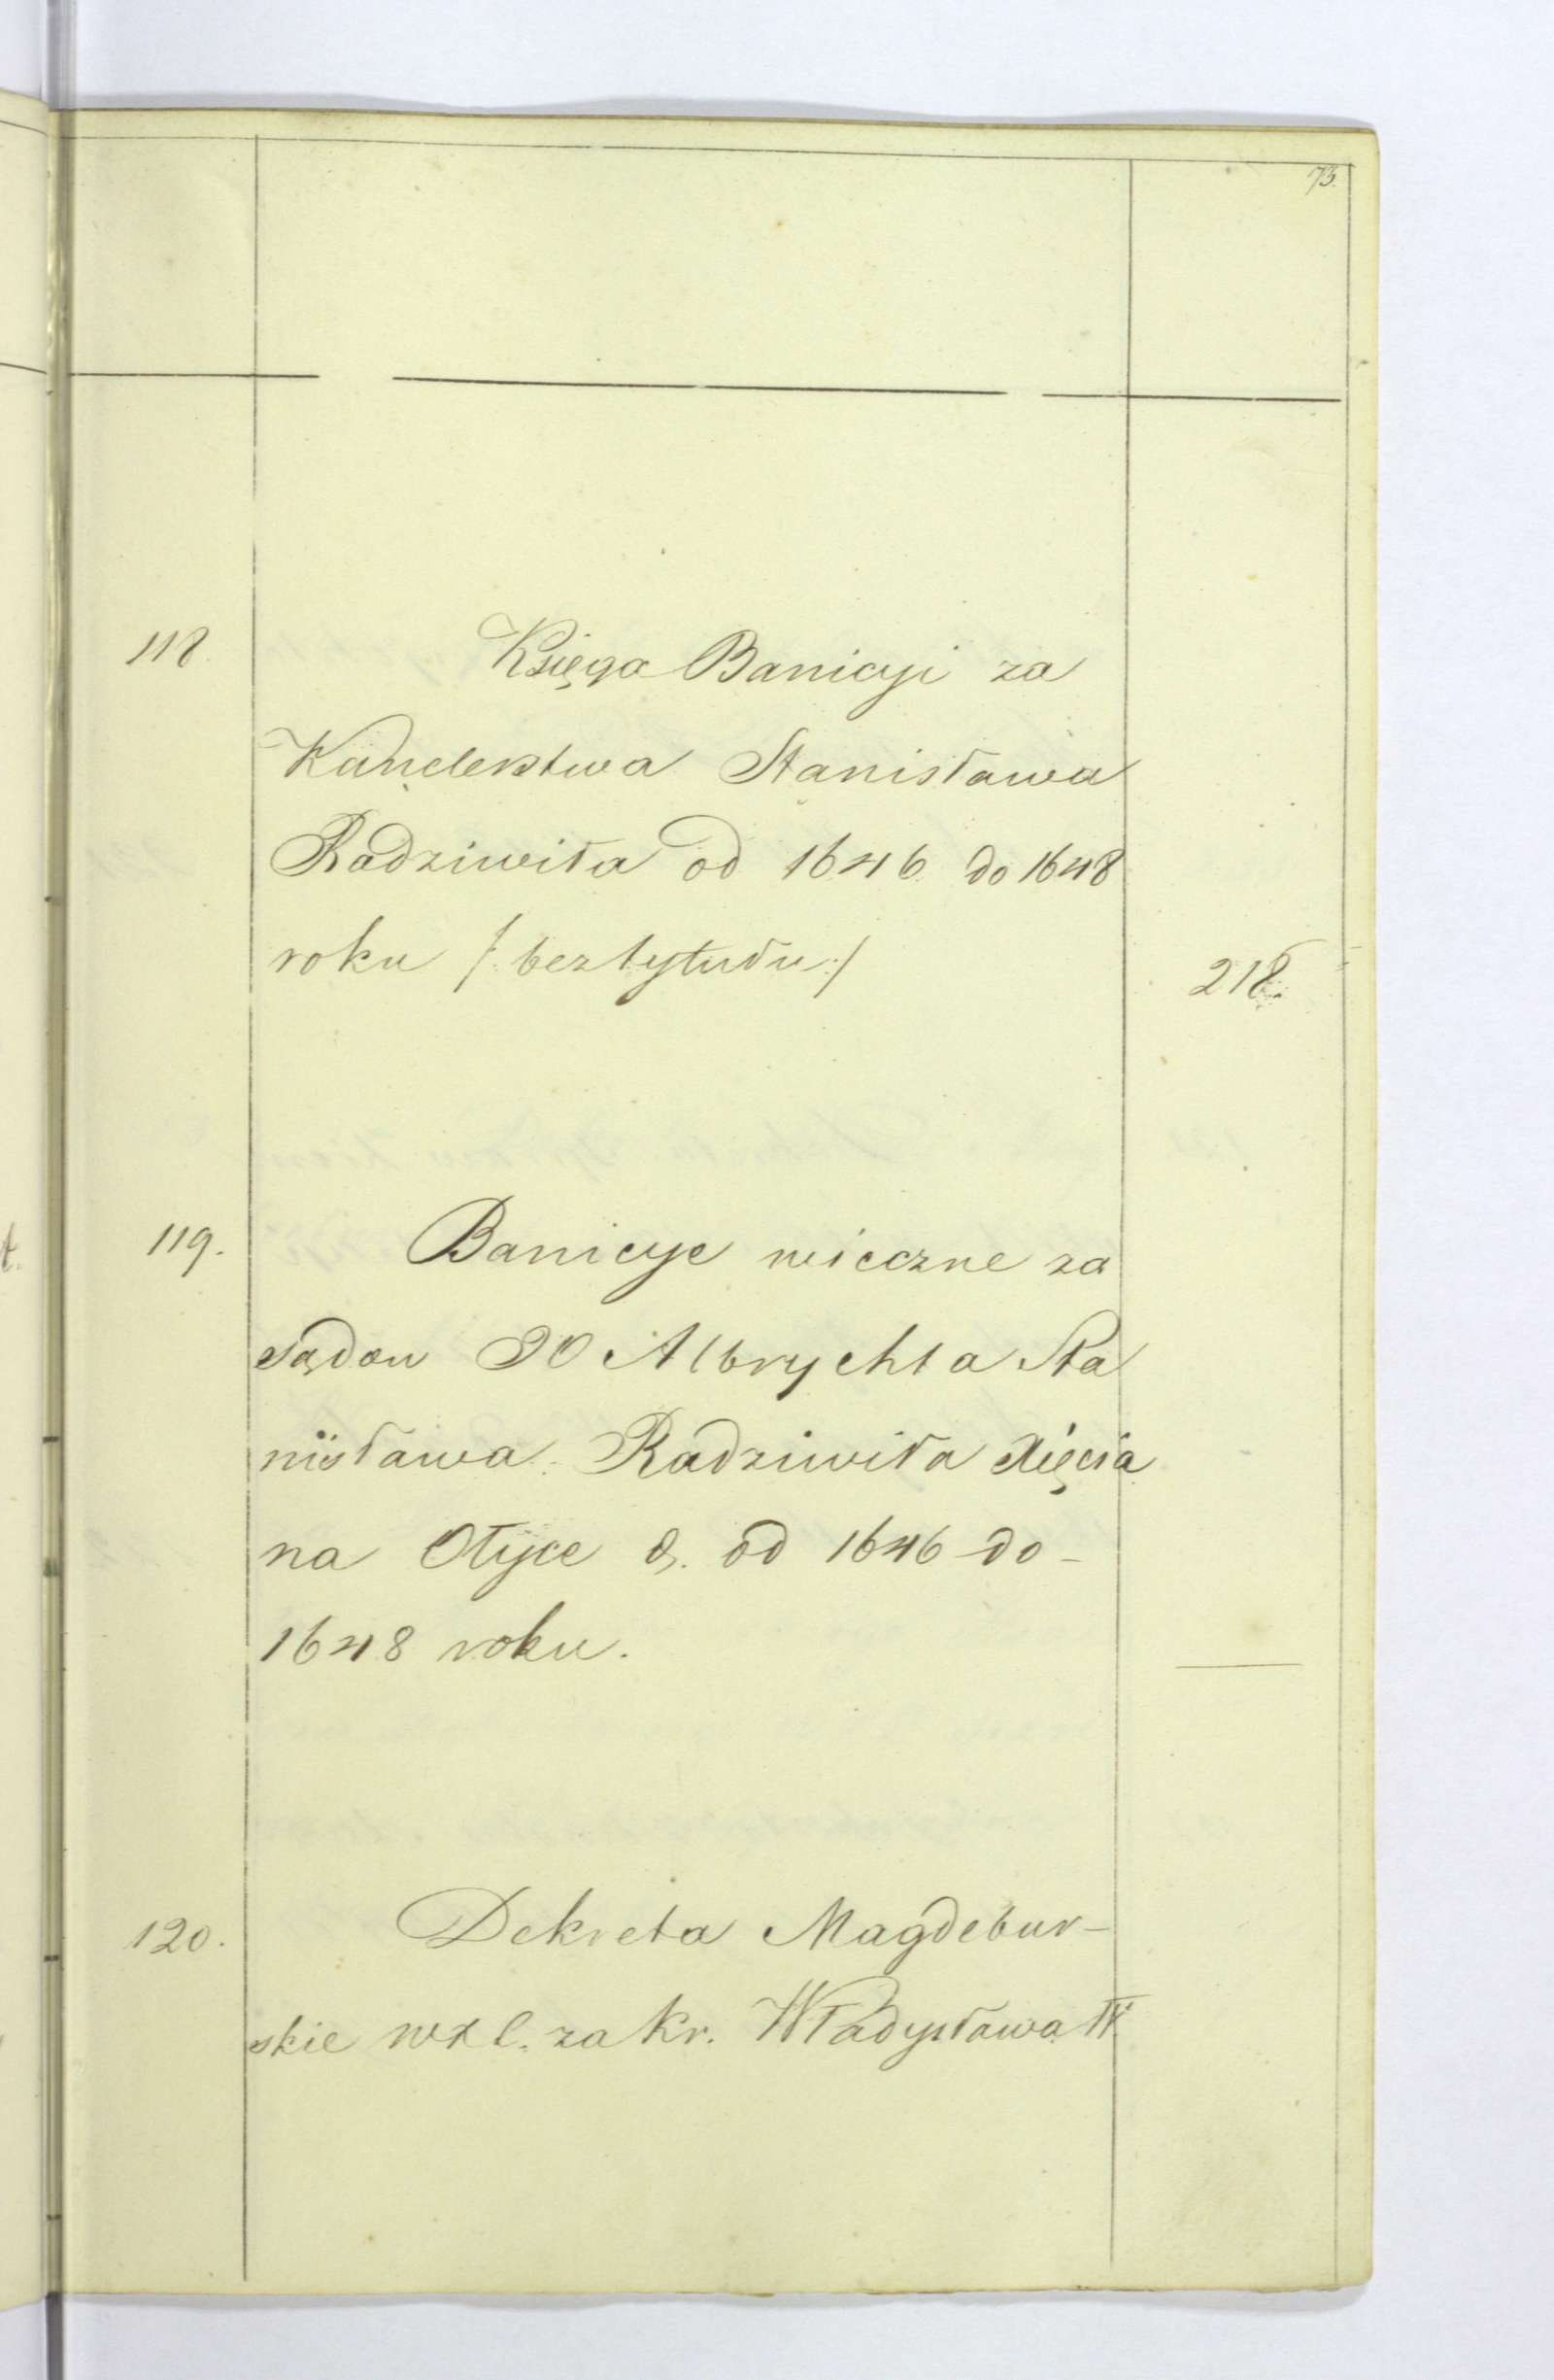 73.
118. Księga Banicyi za
Kanclerstwa Stanisława
Radziwiła od 1646 do 1648
roku /: bez tytułu :/ 218.
119. Banicye wieczne za
sądow JO Albrychta Sta
nisława Radziwiła Xięcia
na Ołyce &. od 1646 do-
1648 roku.
120. Dekreta Magdebur-
skie za kr. Władysława IV